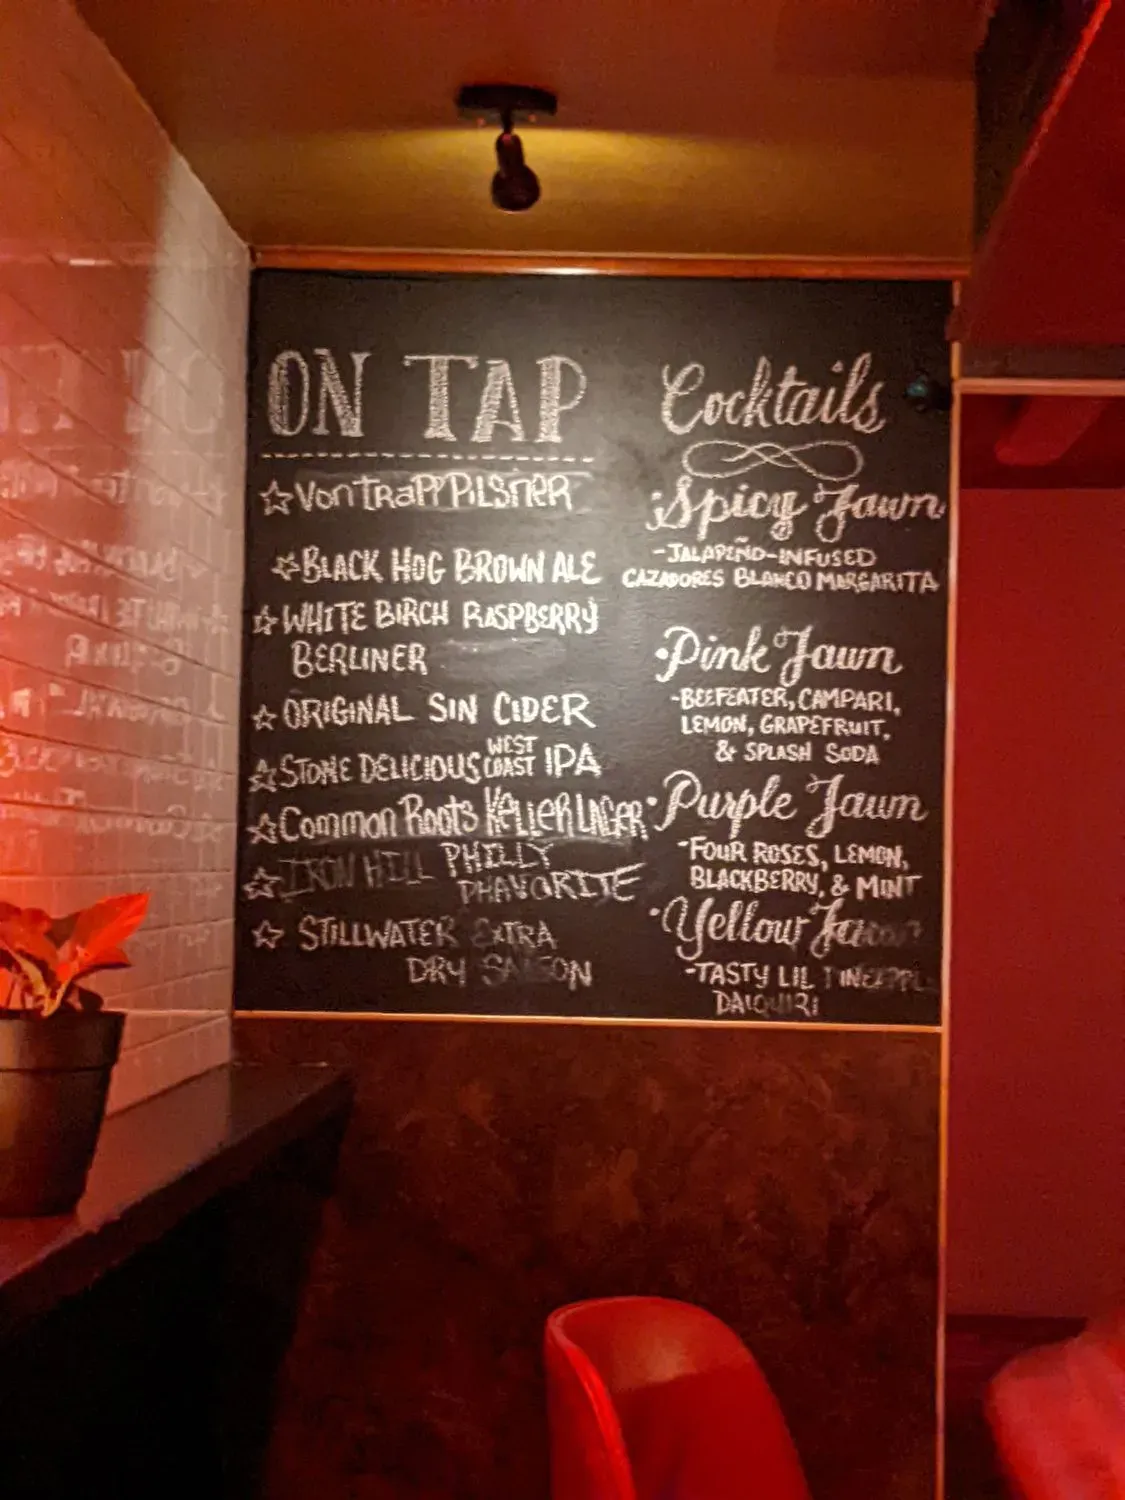 ON TAP
☆ VonTrapp PILSNER
☆ BLACK HOG BROWN ALE
☆ WHITE BIRCH RASPBERRY
BERLINER
☆ ORIGINAL SIN CIDER
☆ STONE DELICIOUS WEST COAST IPA
☆ Common Roots KELLER LAGER
☆ IRON HILL PHILLY
PHAVORITE
☆ STILLWATER EXTRA
DRY SAISON
Cocktails
• Spicy Jawn
- JALAPEÑO-INFUSED
CAZADORES BLANCO MARGARITA
• Pink Jawn
- BEEFEATER, CAMPARI,
LEMON, GRAPEFRUIT,
& SPLASH SODA
• Purple Jawn
- FOUR ROSES, LEMON,
BLACKBERRY, & MINT
• Yellow Jawn
- TASTY LIL PINEAPPLE
DAIQUIRI